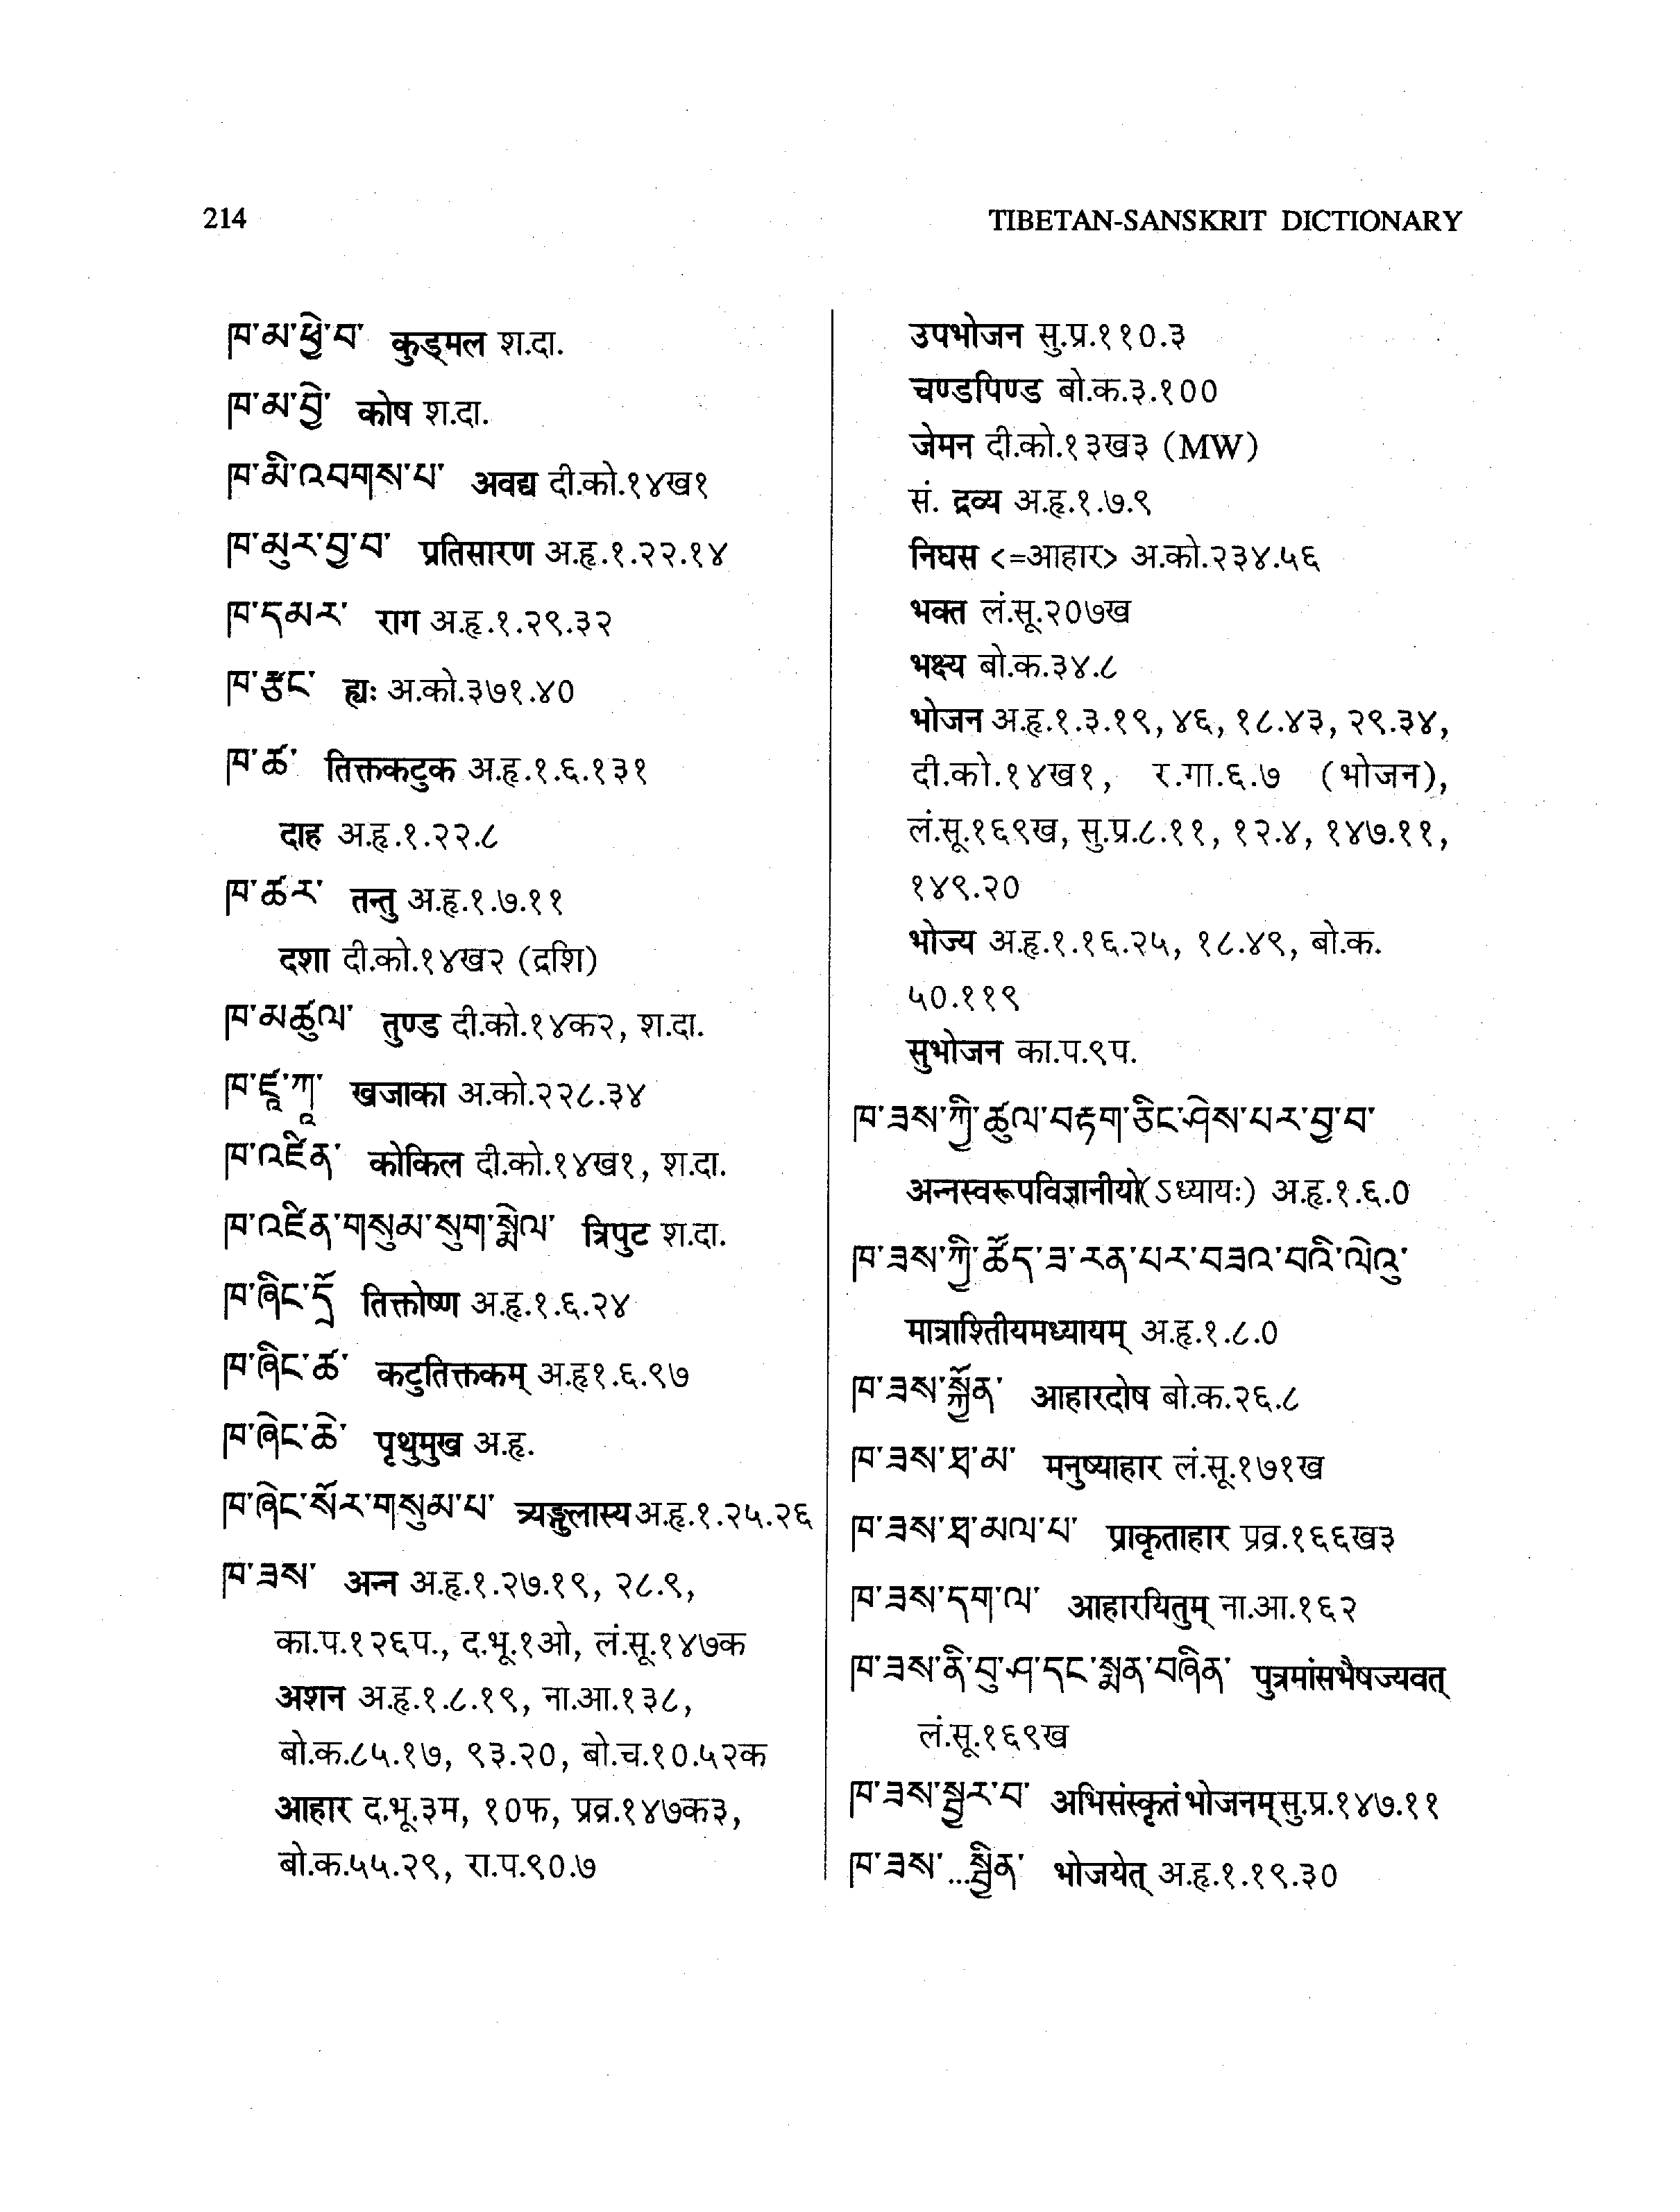 214
TIBETAN-SANSKRIT DICTIONARY
ཁ་མ་ཕྱེ་བ་ कुड्मल श.दा.
ཁ་མ་བྱེ་ कोष श.दा.
ཁ་མི་འབགས་པ་ अवद्य दी.को.१४ख१
ཁ་མུར་བྱ་བ་ प्रतिसारण अ.हृ.१.२२.१४
ཁ་དམར་ राग अ.हृ.१.२९.३२
ཁ་རྩང་ ह्यः अ.को.३७१.४०
ཁ་ཚ་ तिक्तकटुक अ.हृ.१.६.१३१
दाह अ.हृ.१.२२.८
ཁ་ཚར་ तन्तु अ.हृ.१.७.११
दशा दी.को.१४ख२ (द्रशि)
ཁ་མཚུལ་ तुण्ड दी.को.१४क२, श.दा.
ཁ་ཛཱ་ཀཱ་ खजाका अ.को.२२८.३४
ཁ་འཛིན་ कोकिल दी.को.१४ख१, श.दा.
ཁ་འཛིན་གསུམ་སུག་སྨེལ་ त्रिपुट श.दा.
ཁ་ཞིང་དྲོ་ तिक्तोष्ण अ.हृ.१.६.२४
ཁ་ཞིང་ཚ་ कटुतिक्तकम् अ.हृ१.६.९७
ཁ་ཞེང་ཆེ་ पृथुमुख अ.हृ.
ཁ་ཞེང་སོར་གསུམ་པ་ त्र्यङ्गुलास्य अ.हृ.१.२५.२६
ཁ་ཟས་ अन्न अ.हृ.१.२७.१९, २८.९,
का.प.१२६प., द.भू.१ओ, लं.सू.१४७क
अशन अ.हृ.१.८.१९, ना.आ.१३८,
बो.क.८५.१७, ९३.२०, बो.च.१०.५२क
आहार द.भू.३म, १०फ, प्रव्र.१४७क३,
बो.क.५५.२९, रा.प.९०.७
उपभोजन सु.प्र.११०.३
चण्डपिण्ड बो.क.३.१००
जेमन दी.को.१३ख३ (MW)
सं. द्रव्य अ.हृ.१.७.९
निघस <=आहार> अ.को.२३४.५६
भक्त लं.सू.२०७ख
भक्ष्य बो.क.३४.८
भोजन अ.हृ.१.३.१९, ४६, १८.४३, २९.३४,
दी.को.१४ख१, र.गा.६.७ (भोजन),
लं.सू.१६९ख, सु.प्र.८.११, १२.४, १४७.११,
१४९.२०
भोज्य अ.हृ.१.१६.२५, १८.४९, बो.क.
५०.११९
सुभोजन का.प.९प.
ཁ་ཟས་ཀྱི་ཚུལ་བརྟག་ཅིང་ཤེས་པར་བྱ་བ་
अन्नस्वरूपविज्ञानीयो(ऽध्यायः) अ.हृ.१.६.०
ཁ་ཟས་ཀྱི་ཚོད་ཟ་རན་པར་བཟའ་བའི་ལེའུ་
मात्राश्तितीयमध्यायम् अ.हृ.१.८.०
ཁ་ཟས་སྐྱོན་ आहारदोष बो.क.२६.८
ཁ་ཟས་ཐ་མ་ मनुष्याहार लं.सू.१७१ख
ཁ་ཟས་ཐ་མལ་པ་ प्राकृताहार प्रव्र.१६६ख३
ཁ་ཟས་དག་ལ་ आहारयितुम् ना.आ.१६२
ཁ་ཟས་ནི་བུ་ཤ་དང་སྨན་བཞིན་ पुत्रमांसभैषज्यवत्
लं.सू.१६९ख
ཁ་ཟས་སྦྱར་བ་ अभिसंस्कृतं भोजनम् सु.प्र.१४७.११
ཁ་ཟས་...སྦྱིན་ भोजयेत् अ.हृ.१.१९.३०